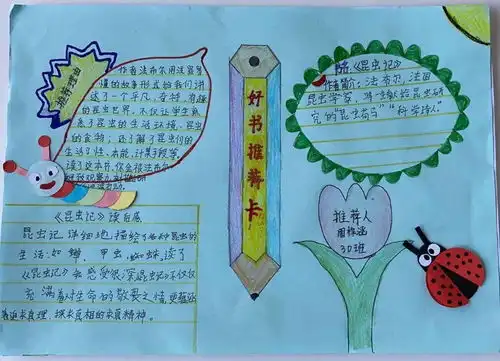 推荐理由
作者法布尔用浅显易
懂的故事形式给我们讲
述了一个平凡、奇特、有趣
的昆虫世界。不仅让学生熟
悉了昆虫的生活环境、昆虫
的食物；还了解了昆虫们的
生活习性、本能、计策手段等，
读了这本书，你会
好书推荐卡
书名：《昆虫记》
作者简介：法布尔，法国
昆虫学家，
究的"昆虫荷马""科学诗人"
推荐人
周作涵
30班
《昆虫记》读后感
昆虫记详细地描绘了各种昆虫的
生活：如蝉、甲虫、蜘蛛，读了
《昆虫记》我感受很深昆虫记不仅仅
充满着对生命的敬畏之情更蕴涵
着追求真理、探求真相的求真精神。